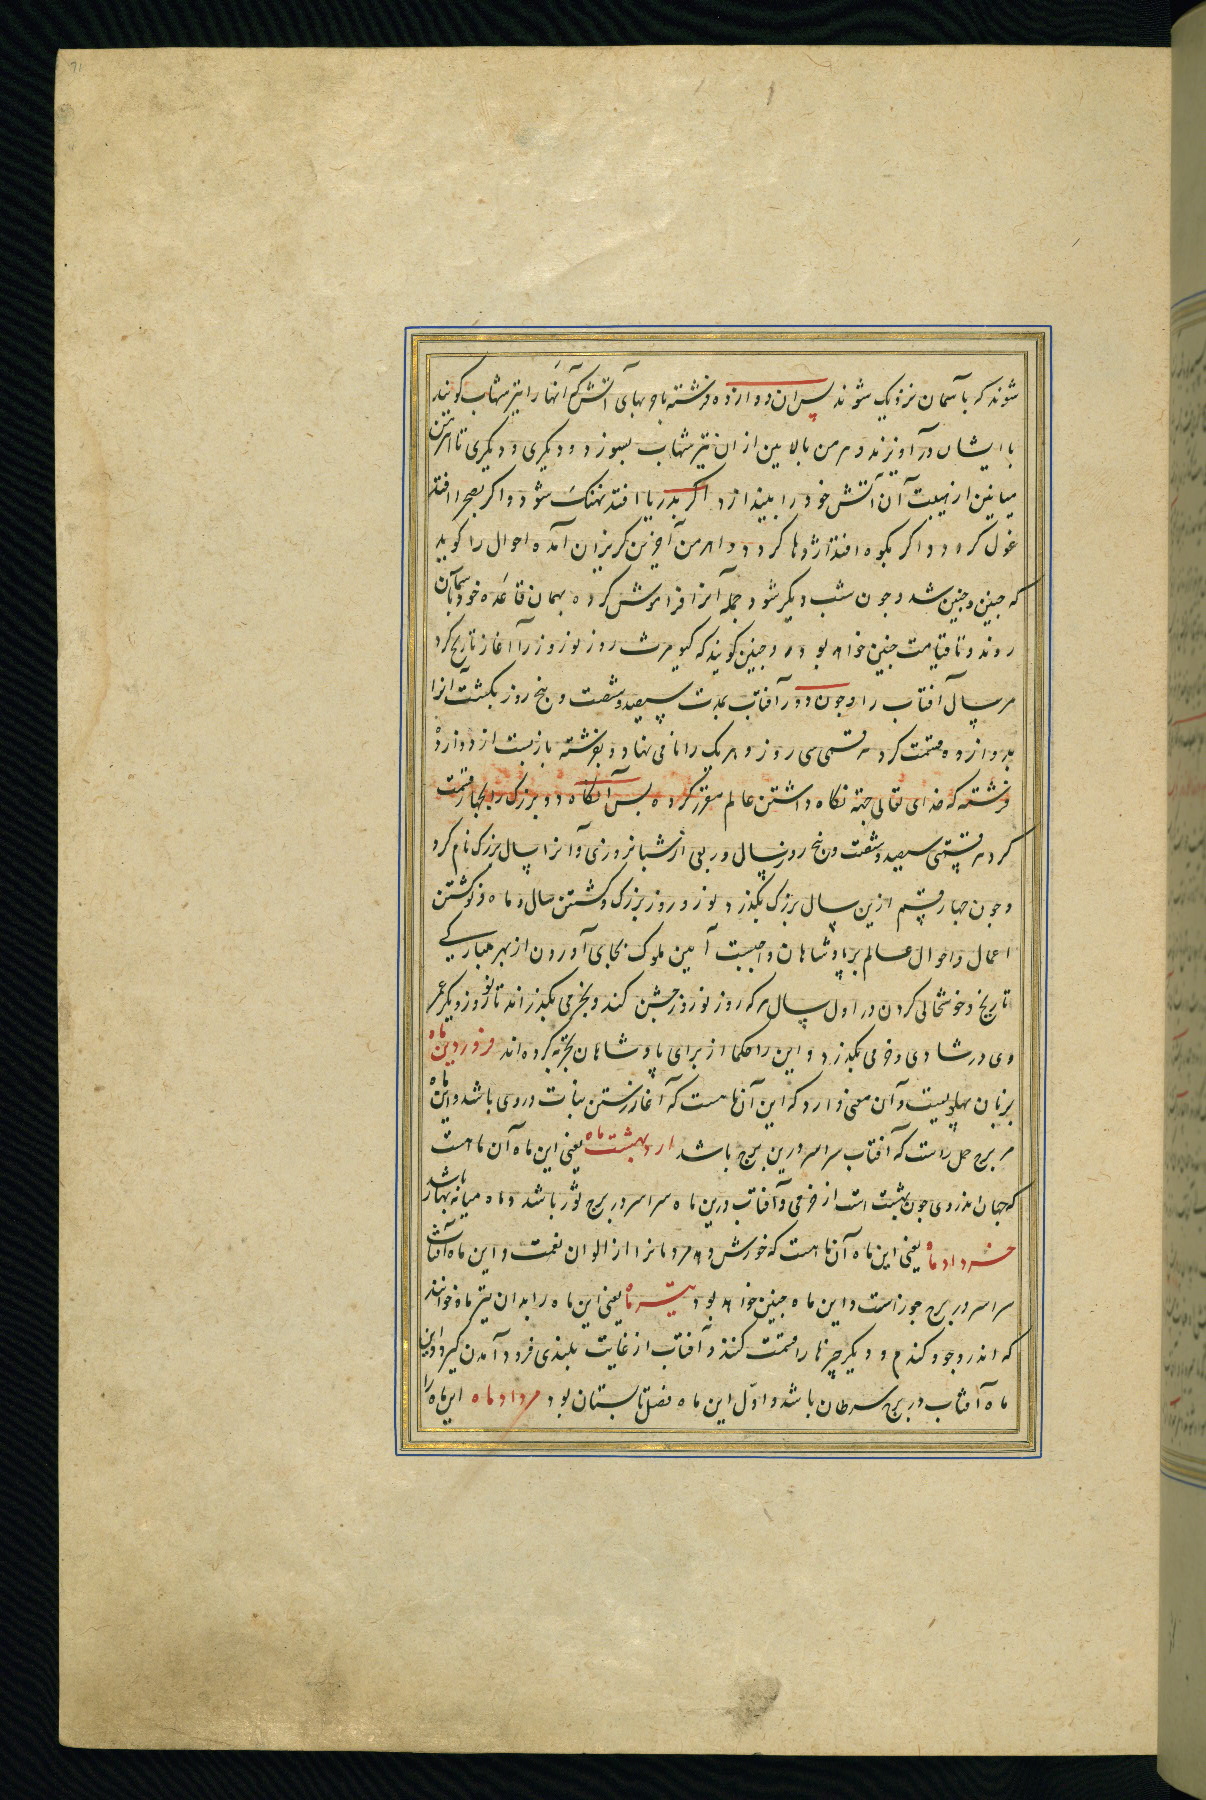 71
شوند که بآسمان نزدیک شوند پس ان دوازده فرشته با حربهای آتش که آنها را تیر شهاب کویند
با ایشان در آویزند و هرمن بالایین از ان تیر شهاب بسوزد و دیکری و دیکری تا اهرمن
میانین از هیبت آن آتش خود را بیندازد اکر بدریا افتد نهنک شود و اکر بصحرا افتد
غول کردد و اکر بکوه افتد اژدها کردد و اهرمن آخرین کریزان آمده احوال را کوید
که چنین و چنین شد و چون شب دیکر شود جمله آنرا فراموش کرده بهمان قاعده خود بآسمان
روند و تا قیامت چنین خواهد بود و چنین کویند که کیومرث روز نوروز را آغاز تاریخ کرد
مر سال آفتاب را و چون دور آفتاب بمدت سیصد و شصت و پنج روز بکشت آنرا
بدوازده قسمت کرد هر قسمی سی روز و هر یک را نامی نهاد و بفرشته باز بست از دوازده
فرشته که خدای تعالی جهة نکاه داشتن عالم مقرر کرده پس آنکاه دور بزرک را بچهار قسمت
کرد هر قسمی سیصد و شصت و پنج روز سال و ربعی از شبانروزی و آنرا سال بزرک نام کرد
و چون چهار قسم ازین سال بزرک بکذرد نوروز بزرک و کشتن سال و ماه و نوشتن
اعمال و احوال عالم بر پادشاهان واجبست آیین ملوک بجای آوردن از بهر مبارکی
تاریخ و خوشحالی کردن در اول سال هر که روز نوروز جشن کند و بخرمی بکذراند تا نوروز دیکر عمر
وی در شادی و خرمی بکذرد و این را حکما از برای پادشاهان تجربه کرده اند فروردین ماه
بزبان پهلویست و آن معنی دارد که این آن ماهست که آغاز رستن نبات در وی باشد و این ماه
مر برج حمل راست که آفتاب سراسر درین برج باشد اردیبهشت ماه یعنی این ماه آن ماهست
که جهان اندر وی چون بهشت است از خرمی و آفتاب درین ماه سراسر در برج ثور باشد و ماه میانه بهار باشد
خرداد ماه یعنی این ماه آن ماهست که خورش دهد مردمانرا از الوان نعمت و این ماه آفتاب
سراسر در برج جوزاست و این ماه چنین خواهد بود تیر ماه یعنی این ماه را بدان تیر ماه خوانند
که اندر و جو و کندم و دیکر چیزها را قسمت کنند و آفتاب از غایت بلندی فرود آمدن کیرد و این
ماه آفتاب در برج سرطان باشد و اوّل این ماه فصل تابستان بود مرداد ماه این ماه را